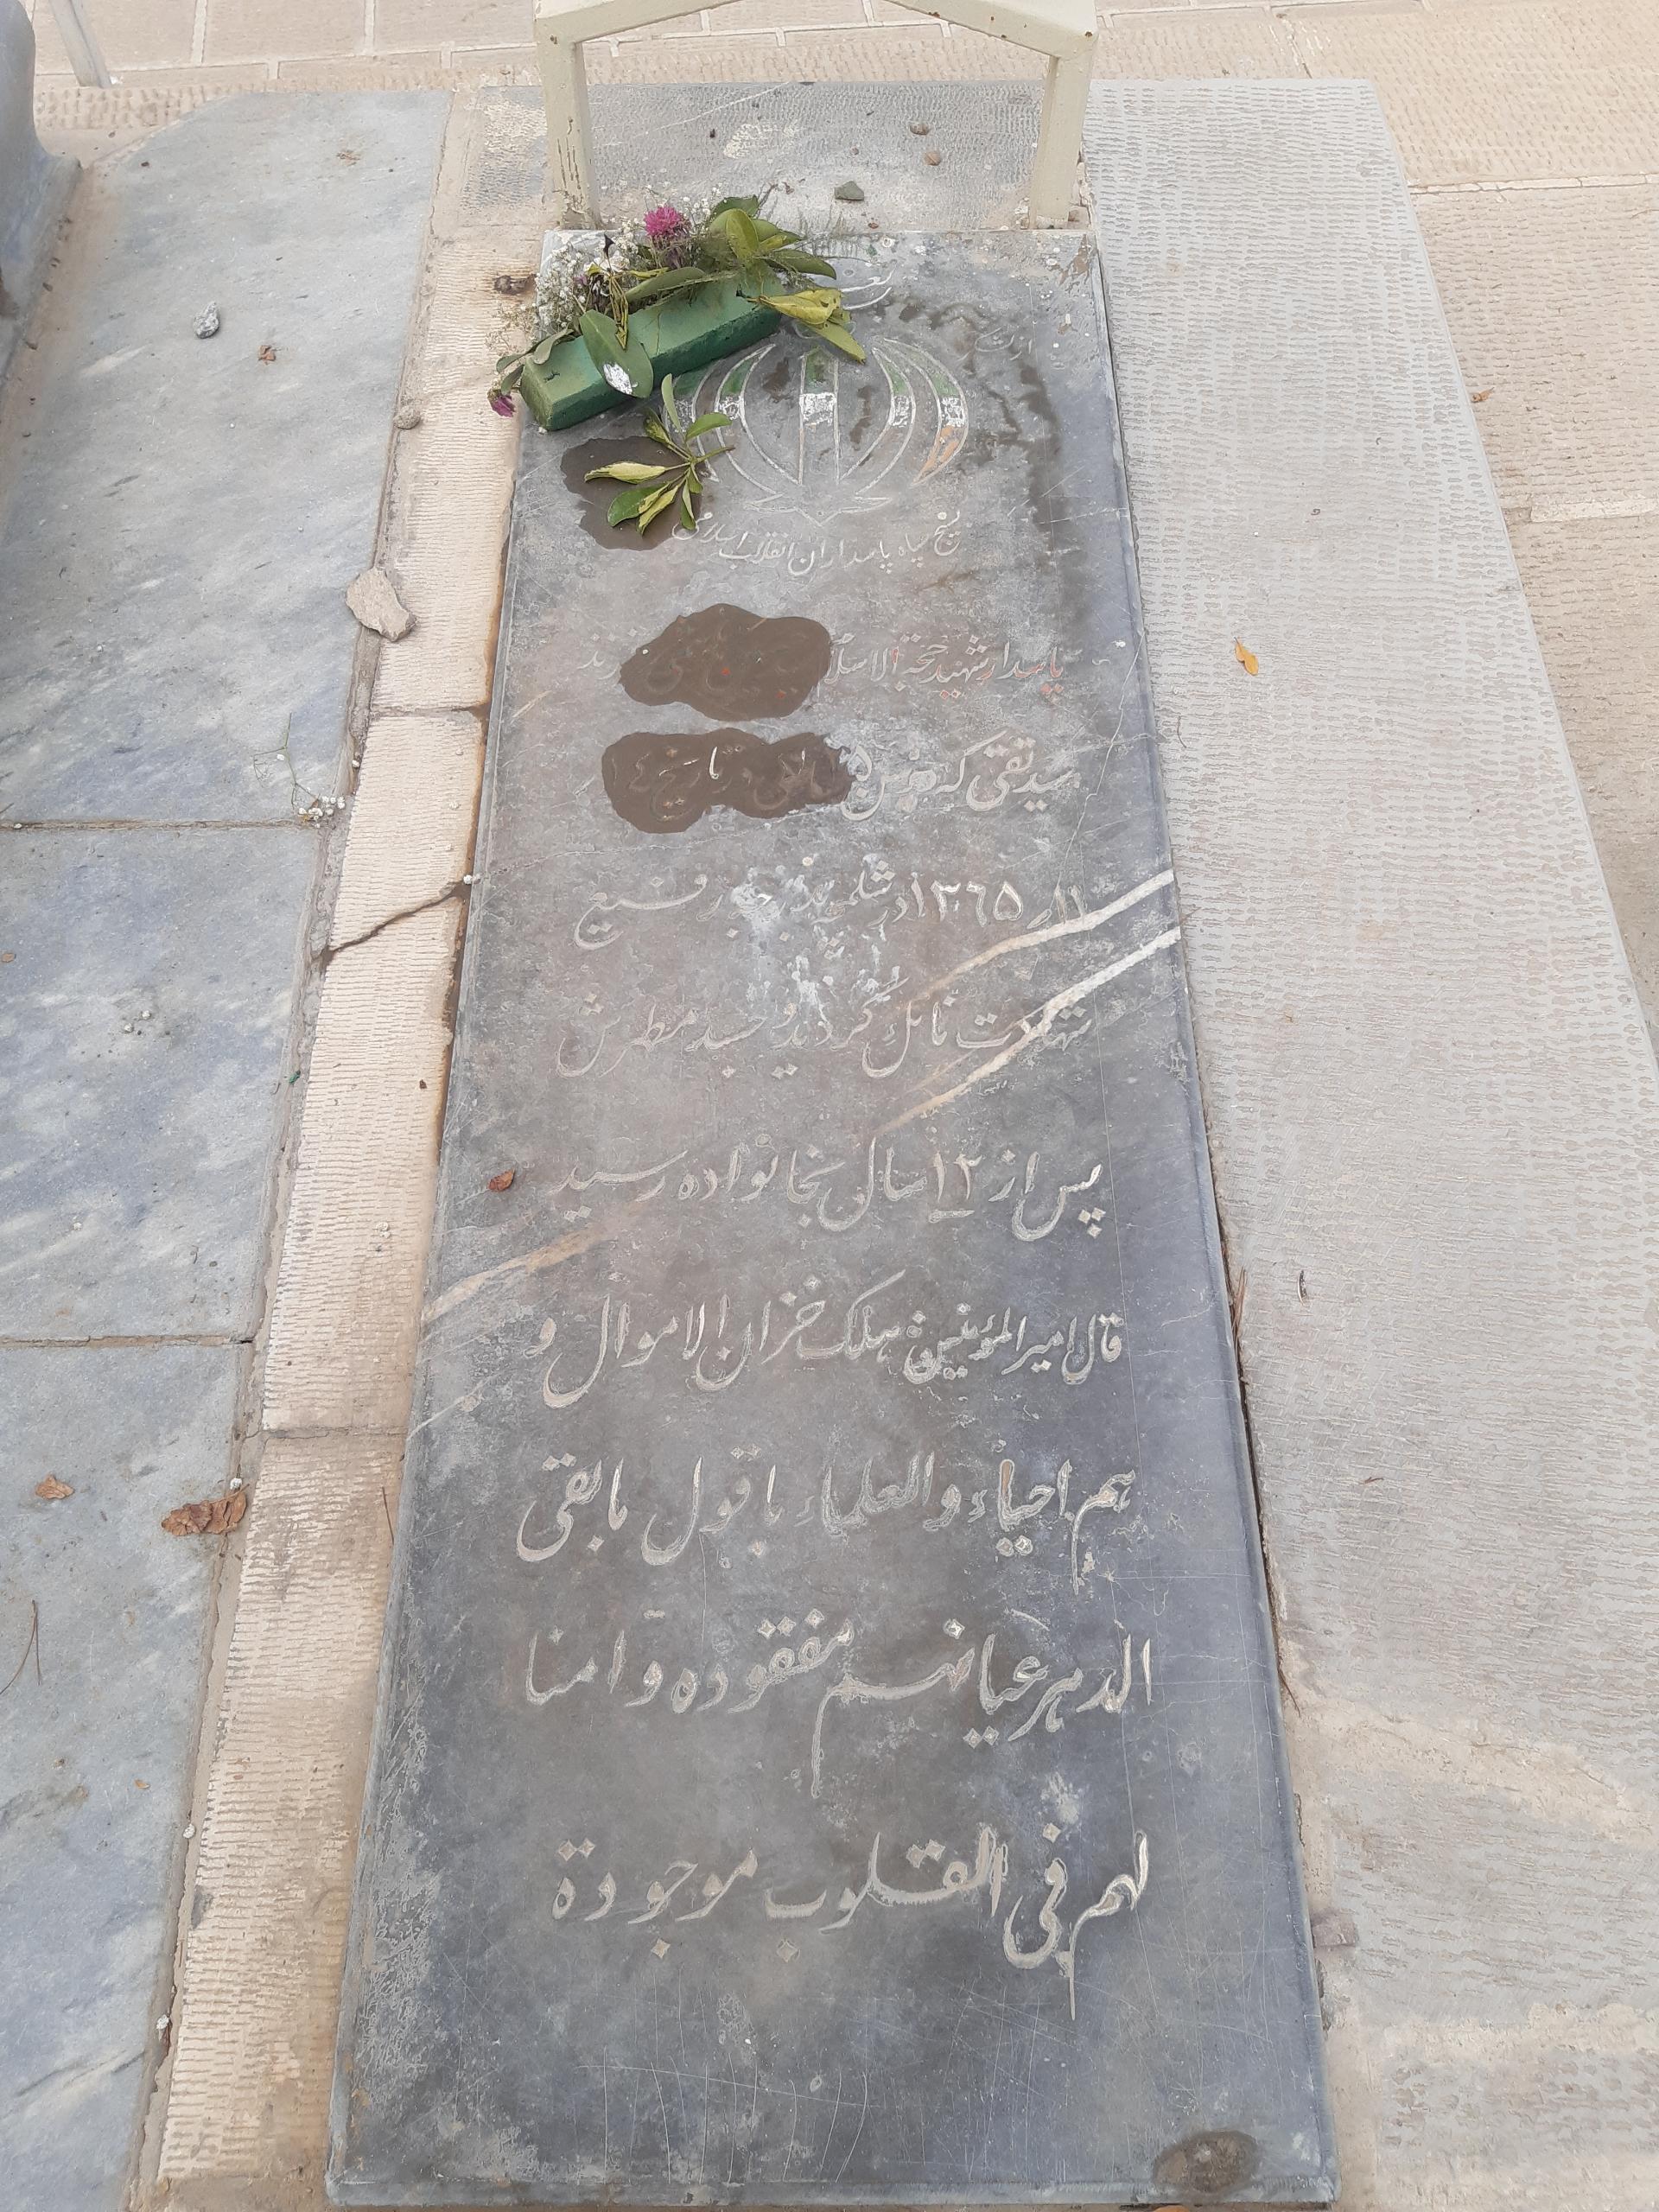 بسیج سپاه پاسداران انقلاب اسلامی
پاسدار شهید حجة الاسلام فرزند
سید تقی که در سن سالگی در تاریخ ۱٤
۱۳٦۵ در شلمچه بدرجه رفیع
شهادت نائل گردید و جسد مطهرش
پس از ۱۲ سال بخانواده رسید
قال امیر المؤمنین هلک خزان الاموال و
هم احیاء و العلماء باقول مابقی
الدهر عیانهم مفقوده و امنا
لهم فی القلوب موجودة